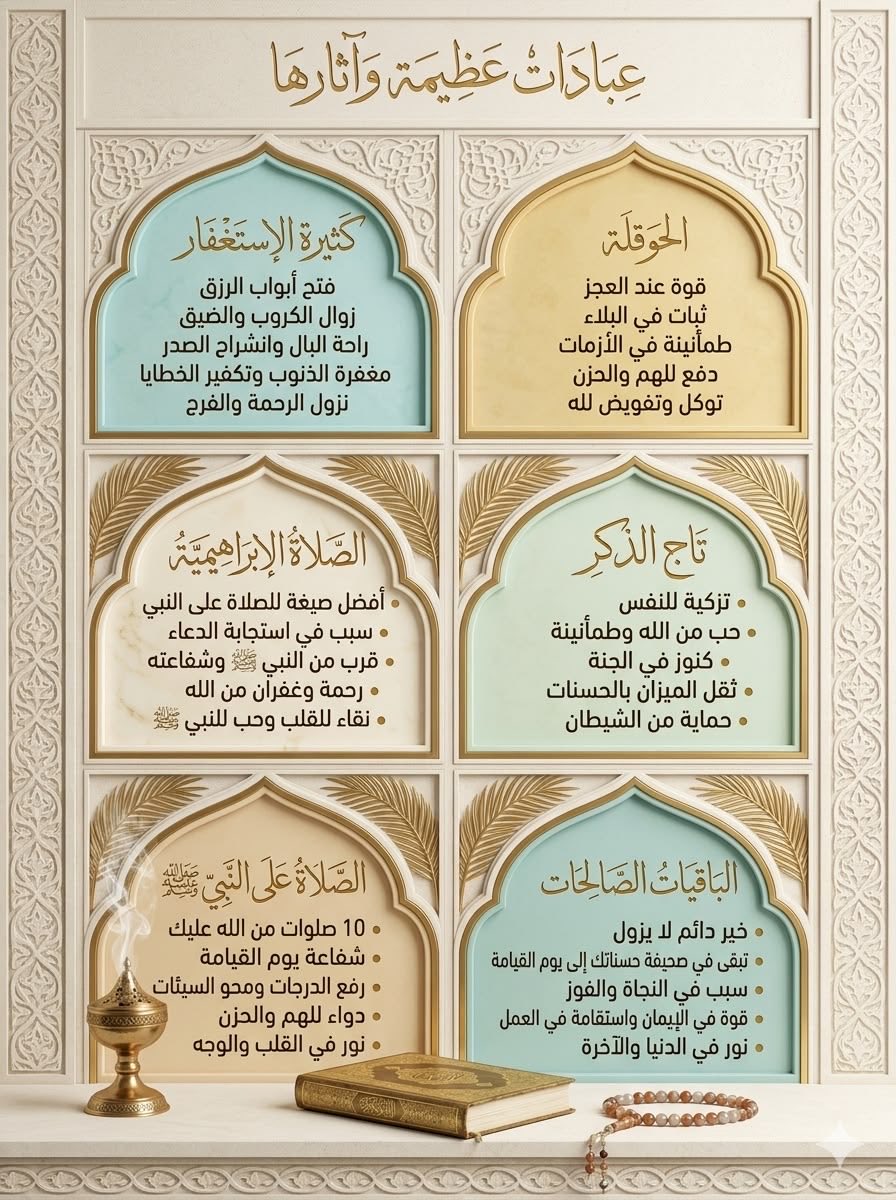 عِبَادَاتٌ عَظِيمَة وَآثارهَا
الحَوقلَة
قوة عند العجز
ثبات في البلاء
طمأنينة في الأزمات
دفع للهم والحزن
توكل وتفويض لله
كَثيرة الإستَغْفَار
فتح أبواب الرزق
زوال الكروب والضيق
راحة البال وانشراح الصدر
مغفرة الذنوب وتكفير الخطايا
نزول الرحمة والفرج
تَاج الذكرِ
• تزكية للنفس
• حب من الله وطمأنينة
• كنوز في الجنة
• ثقل الميزان بالحسنات
• حماية من الشيطان
الصَّلاةُ الإبرَاهِيميَّةُ
• أفضل صيغة للصلاة على النبي
• سبب في استجابة الدعاء
• قرب من النبي ﷺ وشفاعته
• رحمة وغفران من الله
• نقاء للقلب وحب للنبي ﷺ
البَاقيَاتُ الصَّالِحَات
• خير دائم لا يزول
• تبقى في صحيفة حسناتك إلى يوم القيامة
• سبب في النجاة والفوز
• قوة في الإيمان واستقامة في العمل
• نور في الدنيا والآخرة
الصَّلَاةُ عَلَى النَّبِيِّ ﷺ
• 10 صلوات من الله عليك
• شفاعة يوم القيامة
• رفع الدرجات ومحو السيئات
• دواء للهم والحزن
• نور في القلب والوجه